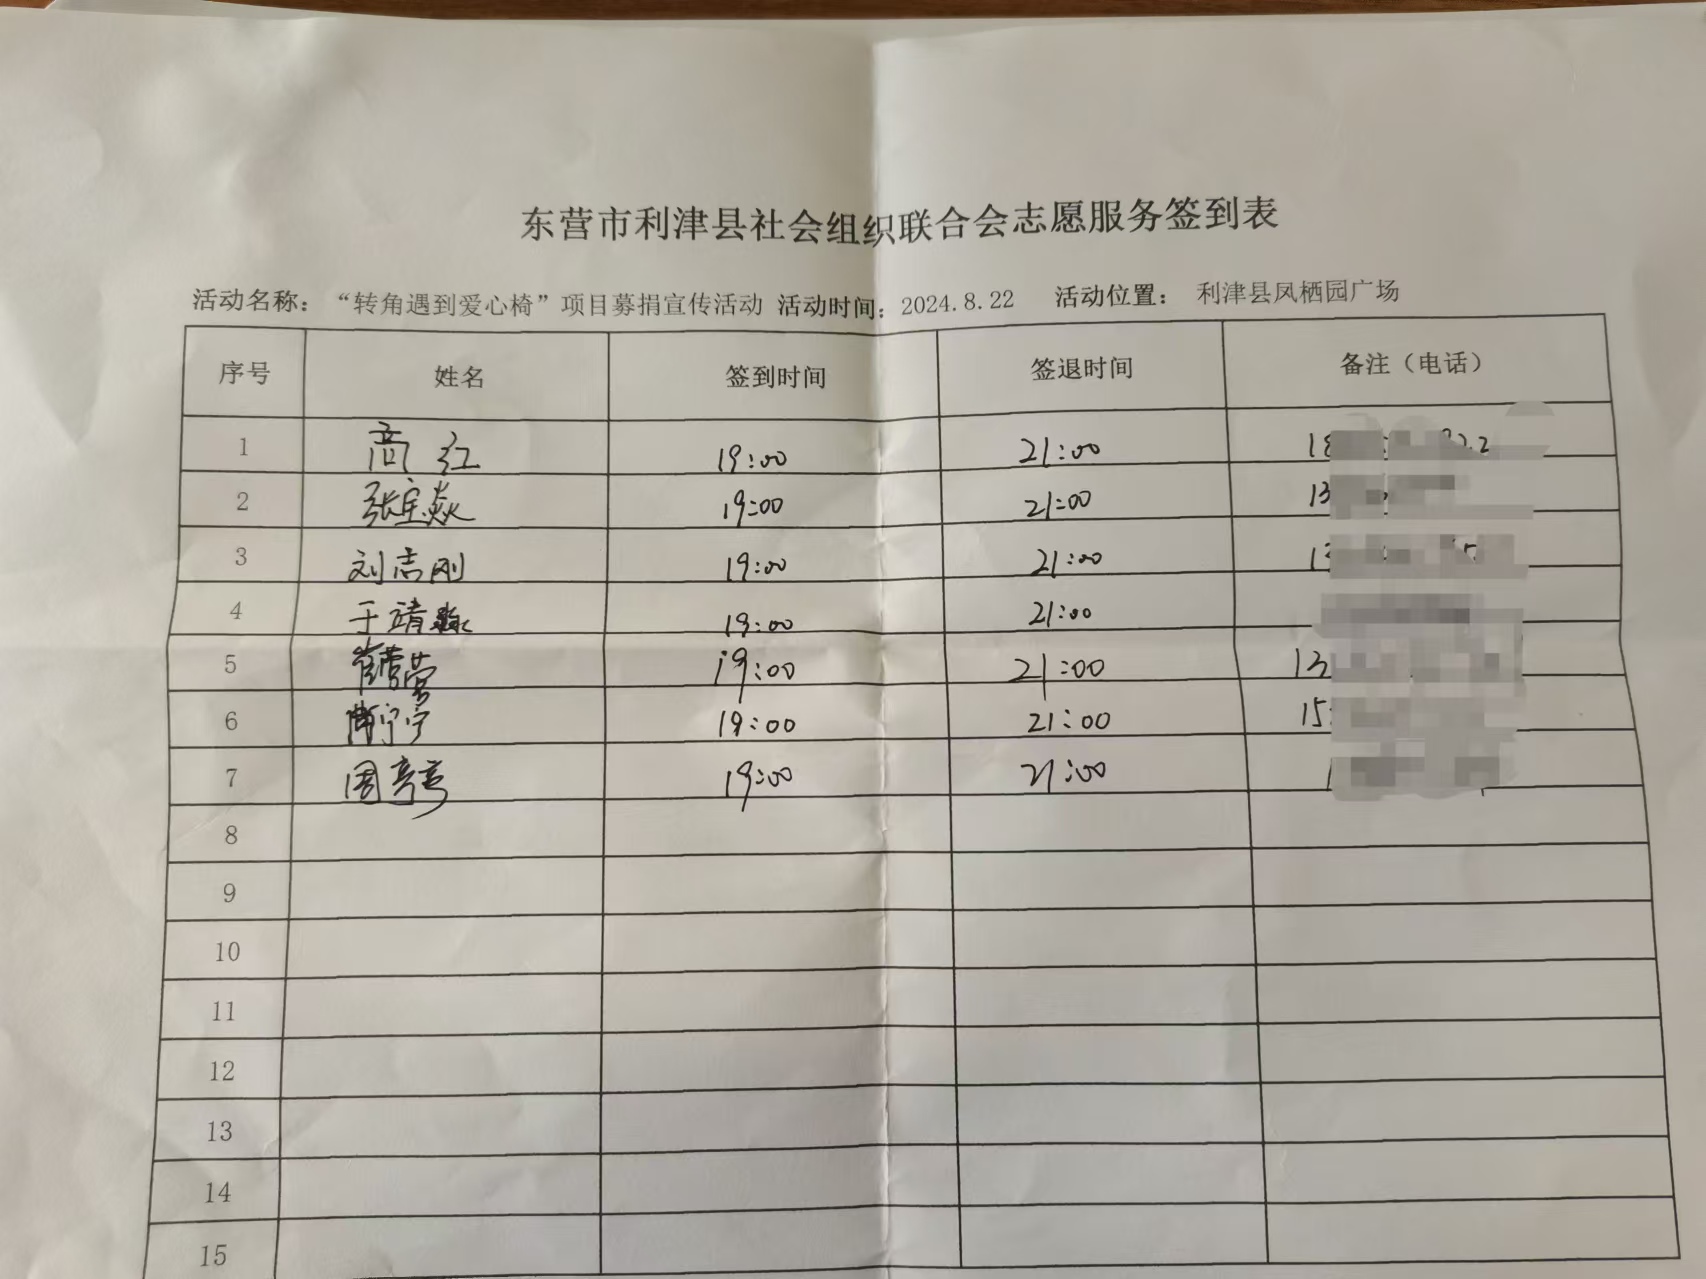 东营市利津县社会组织联合会志愿服务签到表
活动名称：“转角遇到爱心椅”项目募捐宣传活动 活动时间：2024.8.22 活动位置： 利津县凤栖园广场
序号 姓名 签到时间 签退时间 备注（电话）
1 高红 19:00 21:00 18
2 张宝焱 19:00 21:00 13
3 刘志刚 19:00 21:00
4 于靖 19:00 21:00
5 19:00 21:00 13
6 宁宁 19:00 21:00 15
7 周亮亮 19:00 21:00
8
9
10
11
12
13
14
15